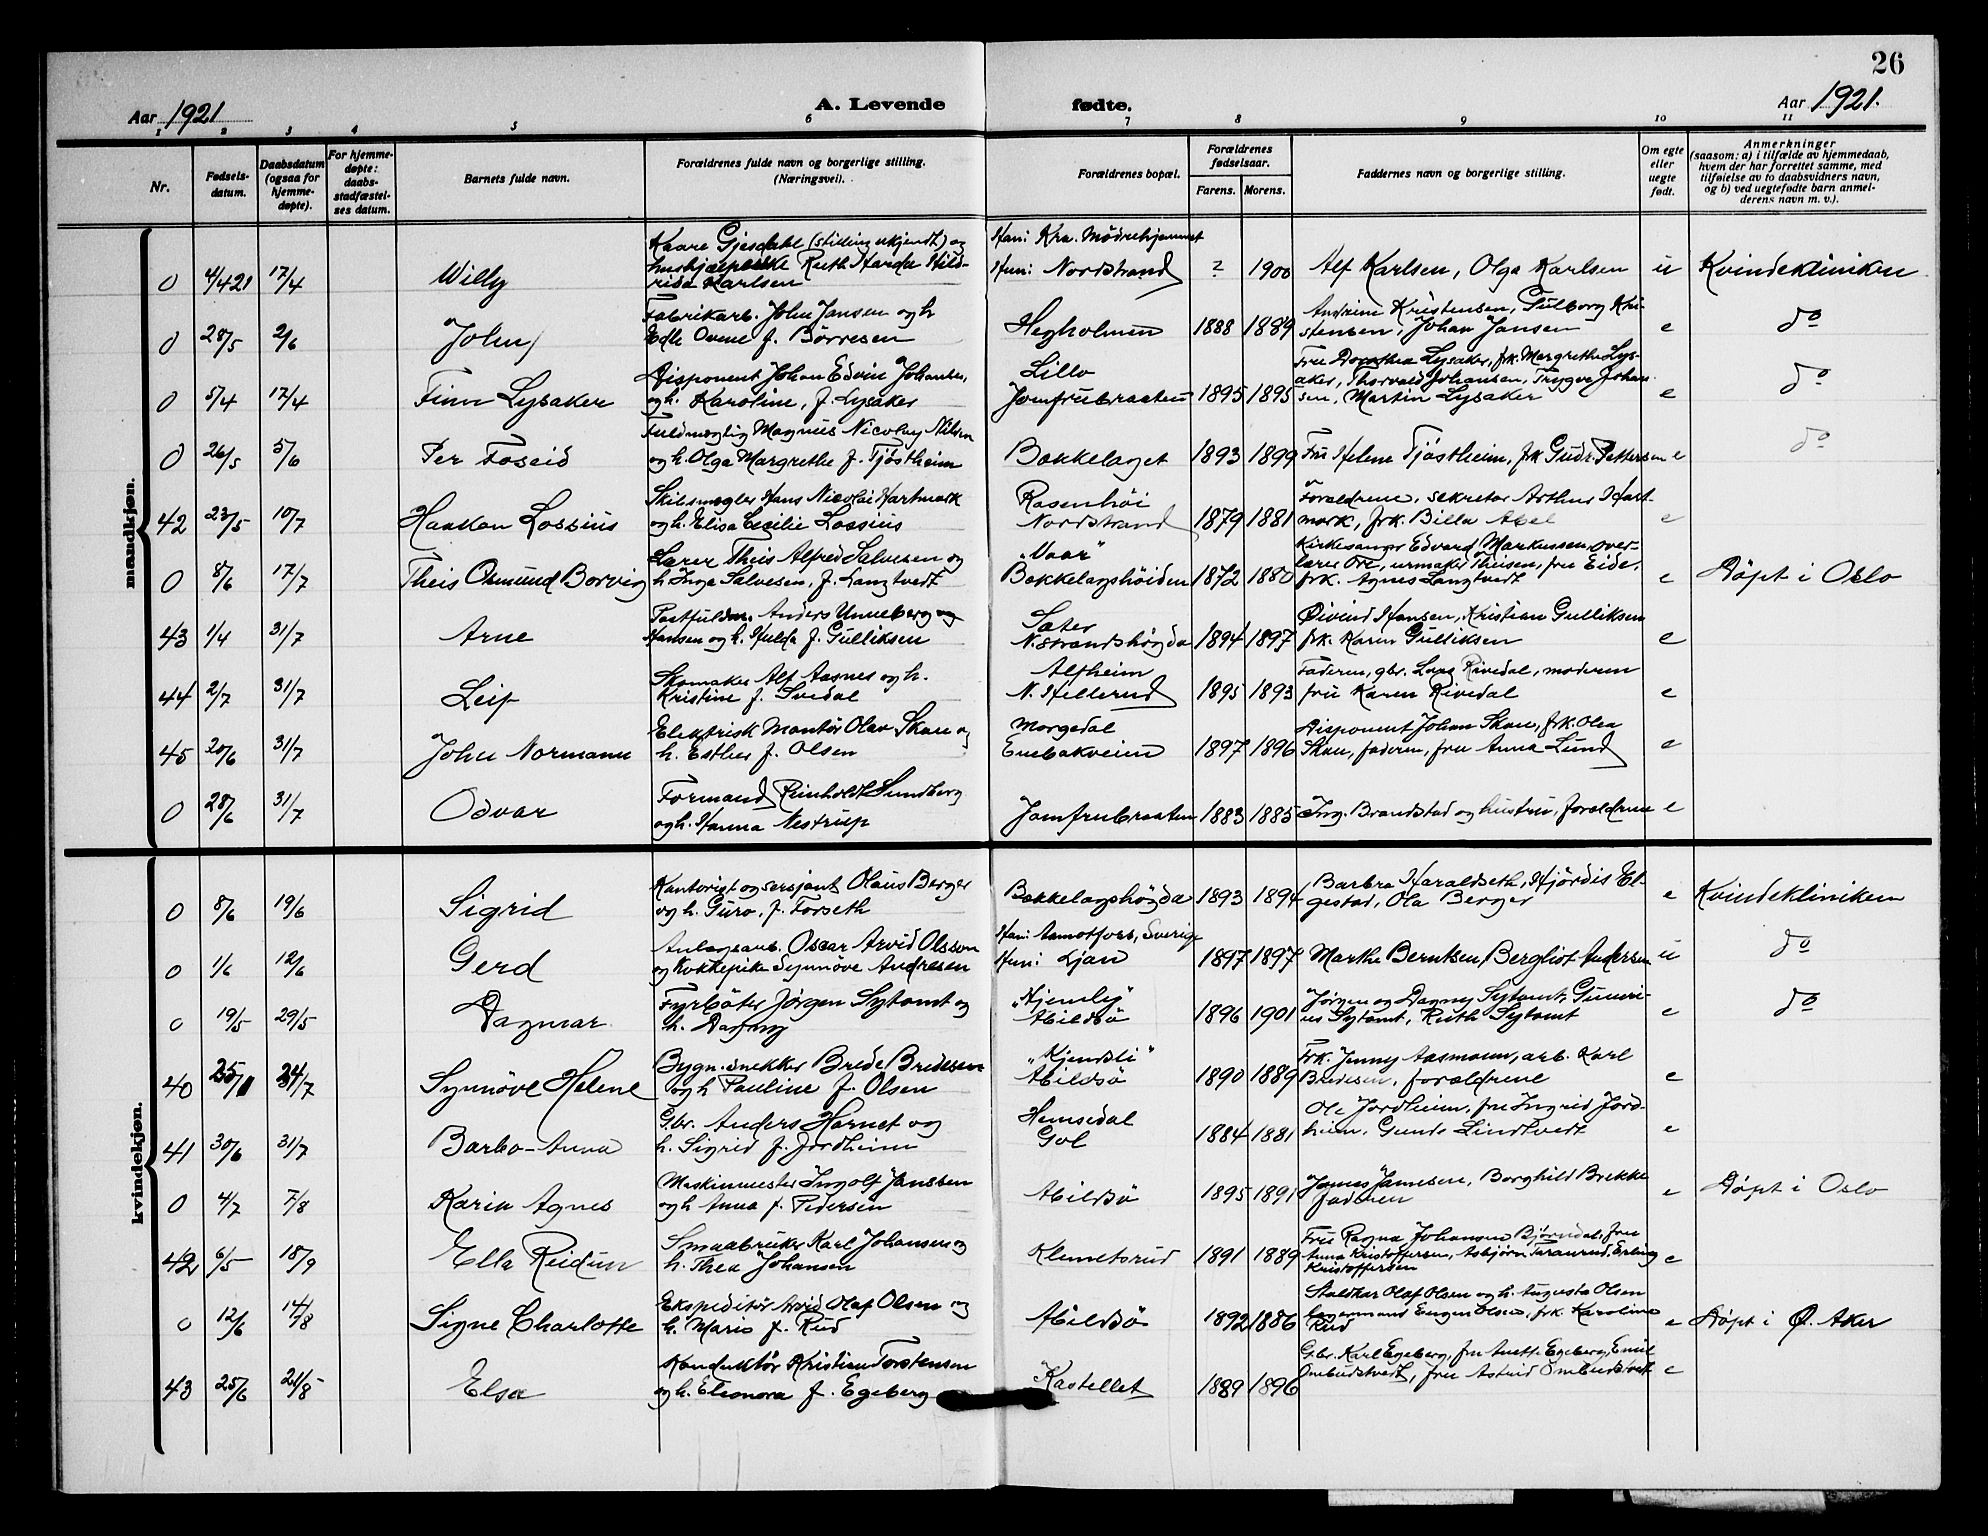 26
Aar 1921
A. Levende fødte.
Aar 1921.
1 2 3 4 5 6 7 8 9 10 11
Nr.
Fødsels-
datum.
Daabsdatum
(ogsaa for
hjemme-
døpte).
For hjemme-
døpte:
daabs-
stadfæstel-
ses datum.
Barnets fulde navn.
Forældrenes fulde navn og borgerlige stilling.
(Næringsvei).
Forældrenes bopæl.
Forældrenes
fødselsaar.
Farens. Morens.
Faddernes navn og borgerlige stilling.
Om egte
eller
uegte
født.
Anmerkninger
(saasom: a) i tilfælde av hjemmedaab,
hvem der har forrettet samme, med
tilføielse av to daabsvidners navn,
og b) ved uegtefødte barn anmel-
derens navn m. v.).
mandkjøn.
Kaare Gjesdahl (stilling ukjendt) og
Han: Kra. Mødrehjemmet
0 4/4 21 17/4 Willy
hushjælperske Ruth Harda Hild-
rida Karlsen
Hun: Nordstrand ? 1900 Alf Karlsen, Olga Karlsen u Kvindekliniken
0 28/5 2/6 John
Fabrikarb. John Jansen og h
Edle Ovene f. Børresen
Hegholmen 1888 1889
Andrine Kristensen, Gulborg Kri-
stensen, Johan Jansen e do
0 5/4 17/4 Finn Lysaker
Disponent Johan Edvin Johansen,
og h. Karoline, f. Lysaker
Lillo
Jomfrubraaten 1895 1895
Fru Dorothea Lysaker, frk. Margrethe Lys-
aker, Thorvald Johansen, Trygve Johan-
sen, Martin Lysaker e do
0 26/5 5/6 Per Foseid
Fuldmegtig Magnus Nicolay Nilsen
og h. Olga Margrethe f. Tjøstheim
Bækkelaget 1893 1899 Fru Helene Tjøstheim, frk Gudr. Pettersen e do
42 23/5 10/7 Haakon Lossius
Skibsmegler Hans Nicolai Hartmark
og h. Elisa Cecilie Lossius
Rosenhøi
Nordstrand 1879 1881
Forældrene, sekretær Arthur Hart-
mark, frk. Billa Abel e
0 8/6 17/7 Theis Osmund Borvig
Lærer Theis Alfred Salvesen og
h. Inga Salvesen, f. Langtvedt
"Vaar"
Bækkelagshøiden 1872 1880
Kirkesanger Edvard Markussen, over-
lærer Ore, urmaker Theisen, fru Eide,
frk. Agnes Langtvedt e Døpt i Oslo
43 1/4 31/7 Arne
Postfuldm. Anders Unneberg
Hansen og h. Hulda f. Gulliksen
Sæter
N.strandshøgda 1894 1897
Øivind Hansen, Kristian Gulliksen
frk. Karen Gulliksen e
44 2/7 31/7 Leif
Skomaker Alf Aasnes og h.
Kristine f. Svedal
Alfheim
N. Hellerud 1895 1893
Faderen, gbr. Lars Rivedal, moderen
fru Karen Rivedal e
45 20/6 31/7 John Normann
Elektrisk Montør Olav Skau og
h. Esther f. Olsen
Morgedal
Enebakveien 1897 1896
Disponent Johan Skau, frk. Olea
Skau, faderen, fru Anna Lund e
0 28/6 31/7 Odvar
Formand Reinholdt Sundberg
og h. Hanna Nestrup
Jomfrubraaten 1883 1885 Ing. Brandstad og hustru, forældrene e
kvindekjøn.
0 8/6 19/6 Sigrid
Kontorist og sersjant Olaus Berger
og h. Guro, f. Forseth
Bækkelagshøgda 1893 1894
Barbra Haraldseth, Hjørdis El-
gestad, Ola Berger e Kvindekliniken
0 1/6 12/6 Gerd
Anlægsarb. Oscar Arvid Olsson
og Kokkepike Synnøve Andresen
Han: Aamotfors, Sverige
Hun: Ljan 1897 1897 Marthe Berntsen, Bergliot Andersen u do
0 19/5 29/5 Dagmar
Fyrbøter Jørgen Sytomt og
h. Dagny
"Hjemly"
Abildsø 1896 1901
Jørgen og Dagny Sytomt, Guneri-
us Sytomt, Ruth Sytomt e do
40 24/7 Synnøve Helene
Bygn.snekker Brede Bredesen
og h Pauline f. Olsen
"Kjendsli"
Abildsø 1890 1889
Frk. Jenny Aasmann, arb. Karl
Bredesen, forældrene e
41 30/6 31/7 Barbo-Anna
Gbr. Anders Harnet og
h. Sigrid f. Jordheim
Hemsedal
Gol 1884 1881
Ole Jordheim, fru Ingrid Jord-
heim, Gunda Lindtvedt e
0 4/7 7/8 Karin Agnes
Maskinmester Ingolf Janssen
og h Anna f. Pedersen
Abildsø 1895 1891
James Jamesen, Borghild Brekke
Faderen e Døpt i Oslo
42 6/5 18/9 Ella Reidun
Smaabruker Karl Johansen og
h. Thea Johansen
Klemetsrud 1891 1889
Fru Ragna Johansen Bjørndal, fru
Anna Kristoffersen, Asbjørn Taraurud, Erling
Kristoffersen e
0 12/6 14/8 Signe Charlotte
Ekspeditør Arvid Olaf Olsen og
h. Marie f. Rud
Abildsø 1892 1886
Staldkar Olaf Olsen og h. Augusta Olsen
Lagermand Eugen Olsen, frk. Karoline
Rud e Døpt i Ø. Aker
43 25/6 21/8 Elsa
Konduktør Kristian Torstensen
og h. Eleonora f. Egeberg
Kastellet 1889 1896
Gbr. Karl Egeberg, fru Anette Egeberg, Emil
Ombudstvedt, fru Astrid Ombudstvedt e